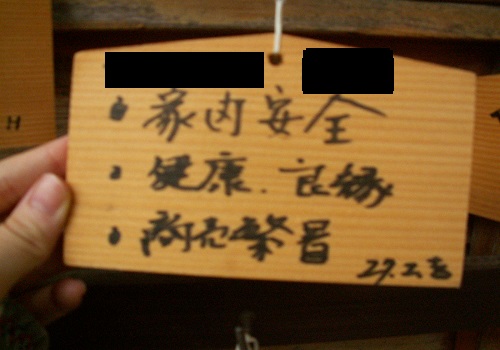 ・家内安全
・健康.良縁
・商売繁昌
H